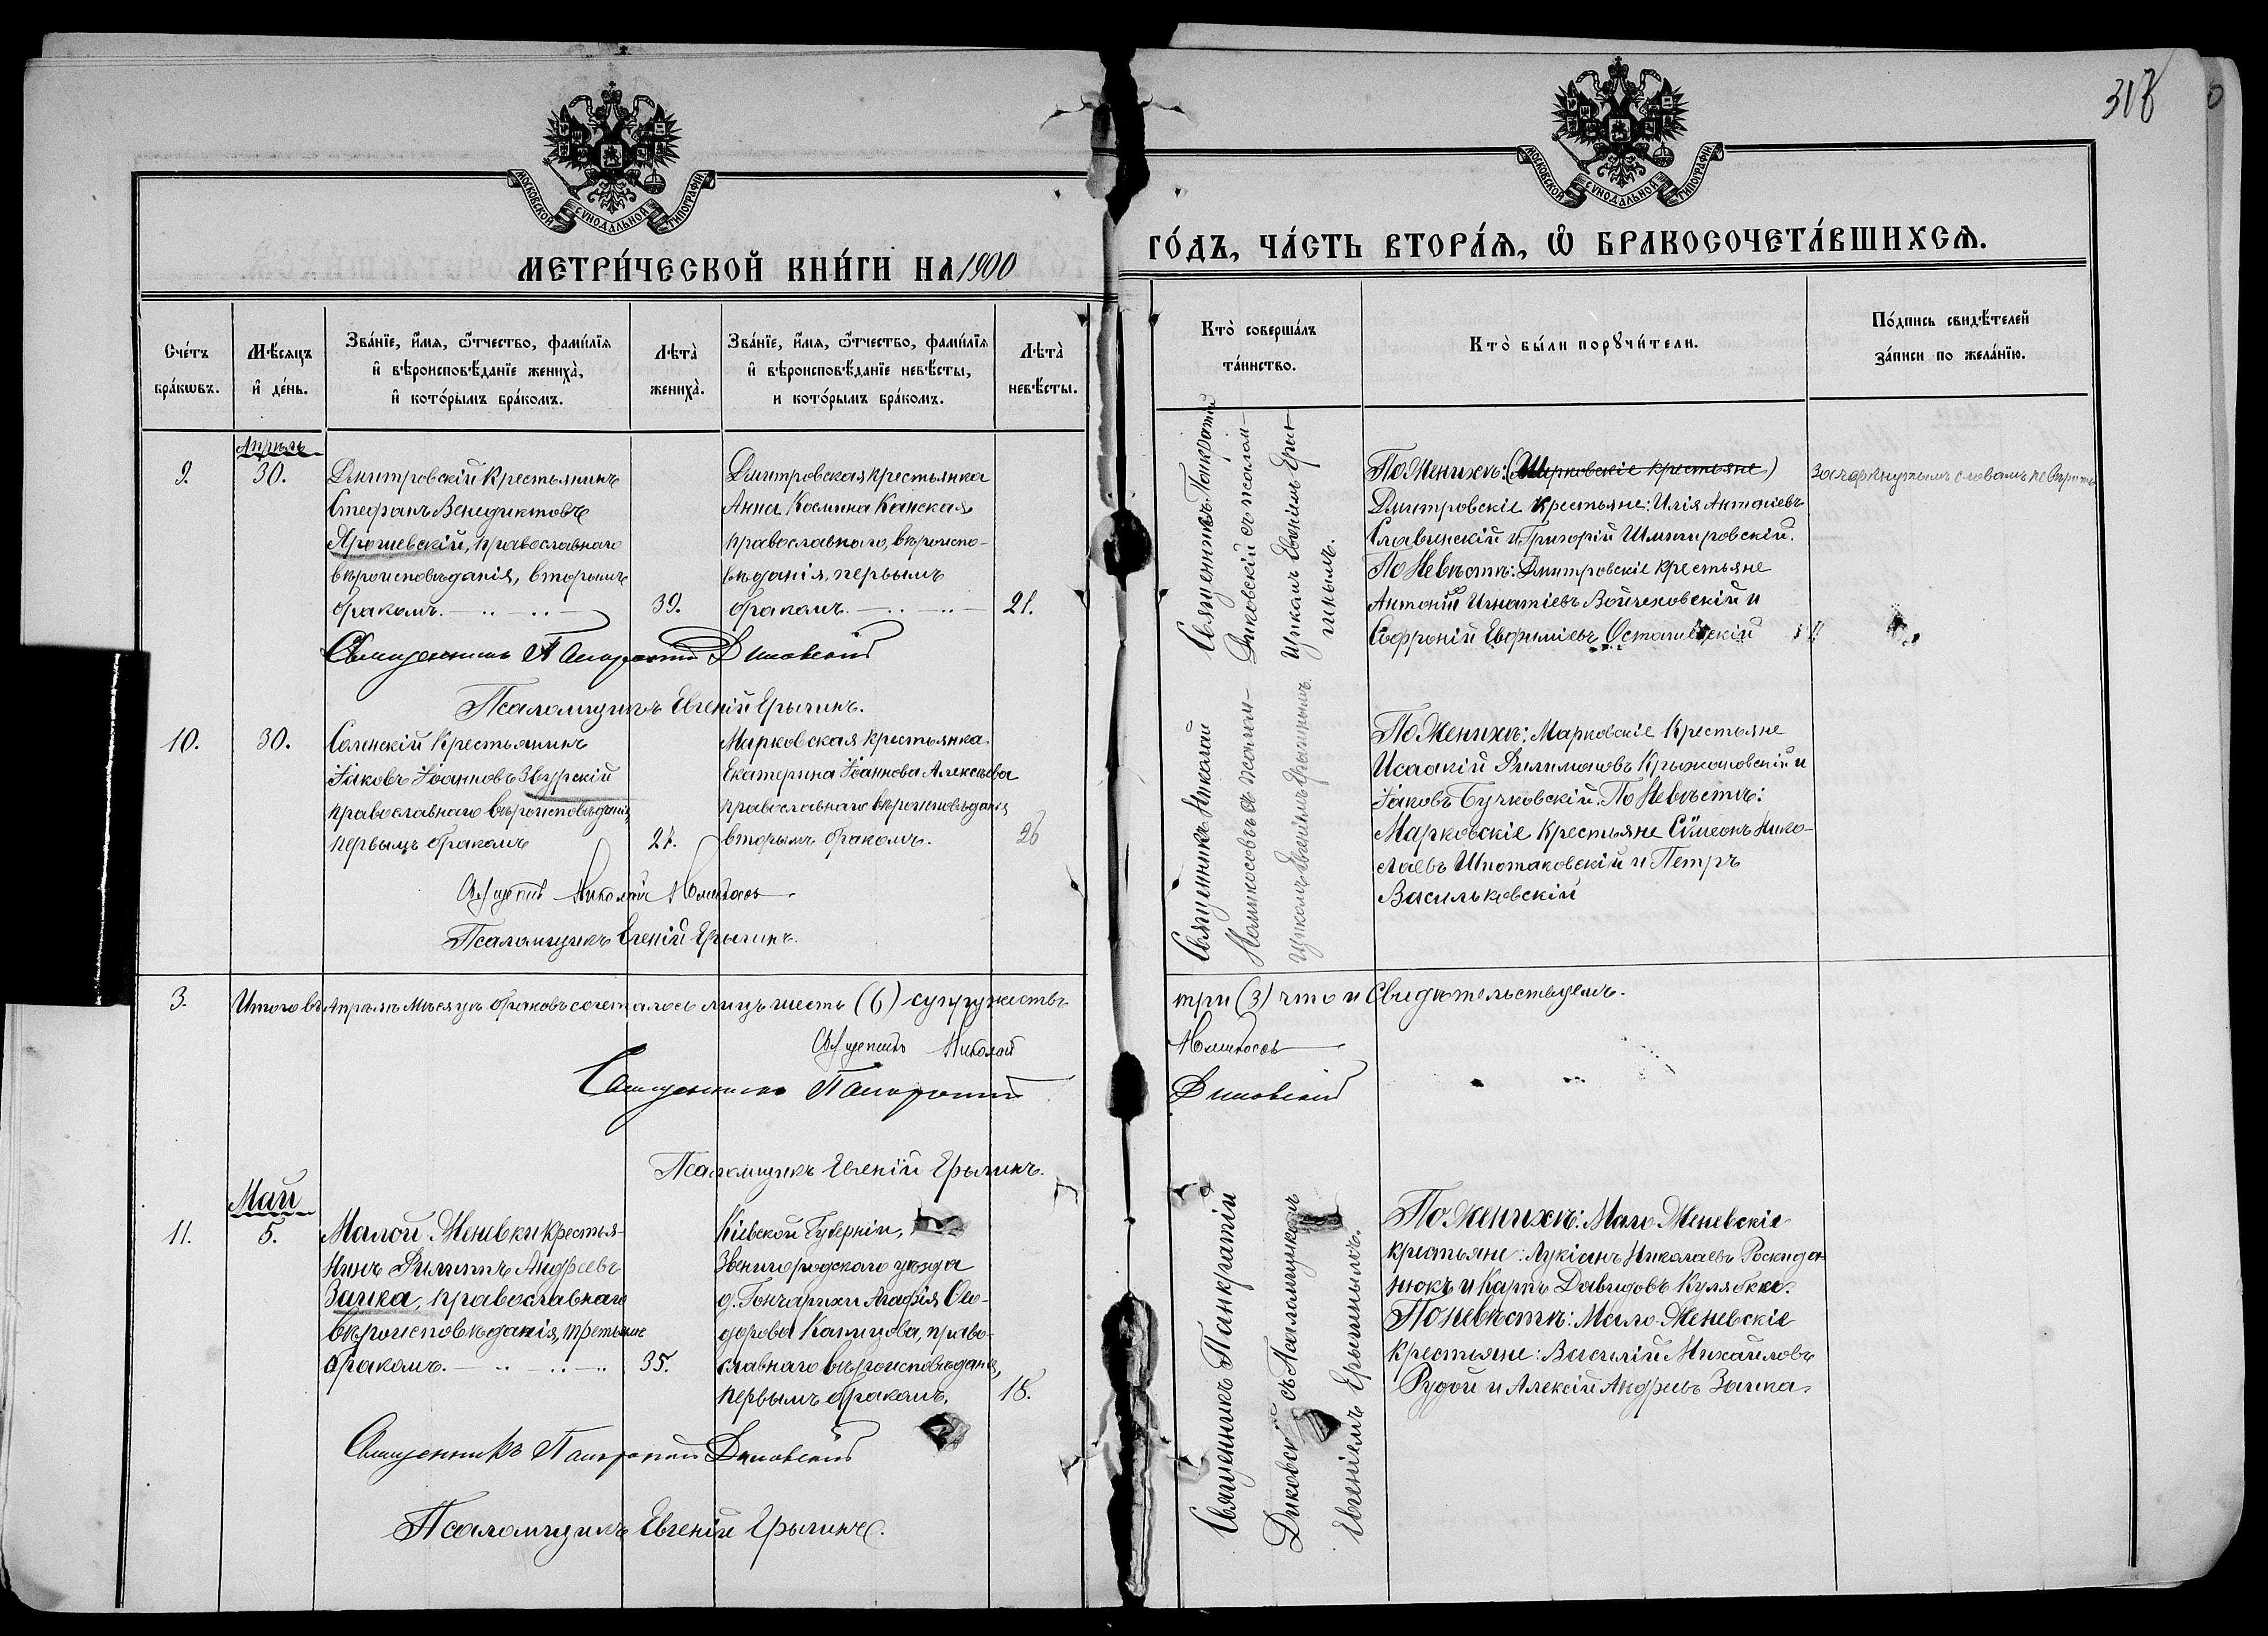 318
МОСКОВСКОЙ СѴНОДАЛЬНОЙ ТИПОГРАФІИ
МОСКОВСКОЙ СѴНОДАЛЬНОЙ ТИПОГРАФІИ
МЕТРИ́ЧЕСКОЙ КНИ́ГИ НА 1900
ГО́ДЪ, ЧА́СТЬ ВТОРА́Я, Ѡ БРАКОСОЧЕТА́ВШИХСЯ.
Сче́тъ
бра́кѡвъ.
Мѣ́сяцъ
и҆ де́нь.
Зва́нїе, и҆́мя, ѻ҆́тчество, фами́лїя
и҆ вѣроисповѣ́данїе жениха̀,
и҆ кото́рымъ бра́комъ.
Лѣта̀
жениха̀.
Зва́нїе, и҆́мя, ѻ҆́тчество, фами́лїя
и҆ вѣроисповѣ́данїе невѣ́сты,
и кото́рымъ бра́комъ.
Лѣта̀
невѣ́сты.
Кто̀ соверша́лъ
та́инство.
Кто̀ бы́ли порꙋчи́тели.
По́дпись свидѣ́телей
за́писи по жела́нїю.
Апрѣль
9.
30.
Дмитровскій Крестьянинъ
Стефанъ Венедиктовъ
Ярошевскій, православнаго
вѣроисповѣданія, вторымъ
бракомъ.
39.
Дмитровская крестьянка
Анна Космина Канская
православнаго, вѣроиспо-
вѣданія, первымъ
бракомъ.
21.
Священникъ Панкратій
Диковскій съ псалом-
щикомъ Евгеніемъ Ерыч-
инымъ.
По Женихѣ: (Марковскіе крестьяне)
Дмитровскіе крестьяне: Илія Антоніевъ
Славинскій и Григорій Шмигировскій.
По Невѣстѣ: Дмитровскіе крестьяне
Антоній Игнатіевъ Войчеховскій и
Софроній Евфиміевъ
Зачеркнутымъ словамъ не вѣрить
Священникъ Панкратій Диковскій
Псаломщикъ Евгеній Ерычинъ.
10.
30.
Крестьянинъ
Іаковъ Іоанновъ Згурскій
православнаго вѣроисповѣданія,
первымъ бракомъ
27.
Марковская крестьянка
Екатерина Іоаннова Алексѣева
православнаго вѣроисповѣданія
вторымъ бракомъ.
26
Священникъ Николай
съ псалом-
щикомъ Евгеніемъ Ерычинымъ.
По Женихѣ: Марковскіе Крестьяне
Исаакій Филимоновъ Крыжановскій и
Іаковъ Бучковскій. По Невѣстѣ:
Марковскіе Крестьяне Сѵмеонъ Нико-
лаевъ Шпотаковскій и Петръ
Васильковскій
Священникъ Николай
Псаломщикъ Евгеній Ерычинъ.
3.
Итого въ Апрѣлѣ мѣсяцѣ браковъ сочеталось лицъ шесть (6) супружествъ
три (3) что и свидѣтельствуемъ.
Священникъ Николай
Священникъ Панкратій
Диковскій
Псаломщикъ Евгеній Ерычинъ.
Май
11.
5.
Малой Женевки крестья-
нинъ Филиппъ Андреевъ
Заика, православнаго
вѣроисповѣданія, третьимъ
бракомъ.
35.
Кіевской Губерніи,
Звенигородскаго уѣзда
д. Гончарихи Агафія Ѳео-
дорова Капицова, право-
славнаго вѣроисповѣданія,
первымъ бракомъ.
18.
Священникъ Панкратій
Диковскій съ Псаломщикомъ
Евгеніемъ Ерычинымъ.
По женихѣ: Мало-Женевскіе
крестьяне: Лукіанъ Николаевъ Роскида-
нюкъ и Карпъ Давидовъ Кулябко.
По невѣстѣ: Мало-Женевскіе
крестьяне: Василій Михаиловъ
Рудой и Алексій Андреевъ Заика.
Священникъ Панкратій Диковскій
Псаломщикъ Евгеній Ерычинъ.